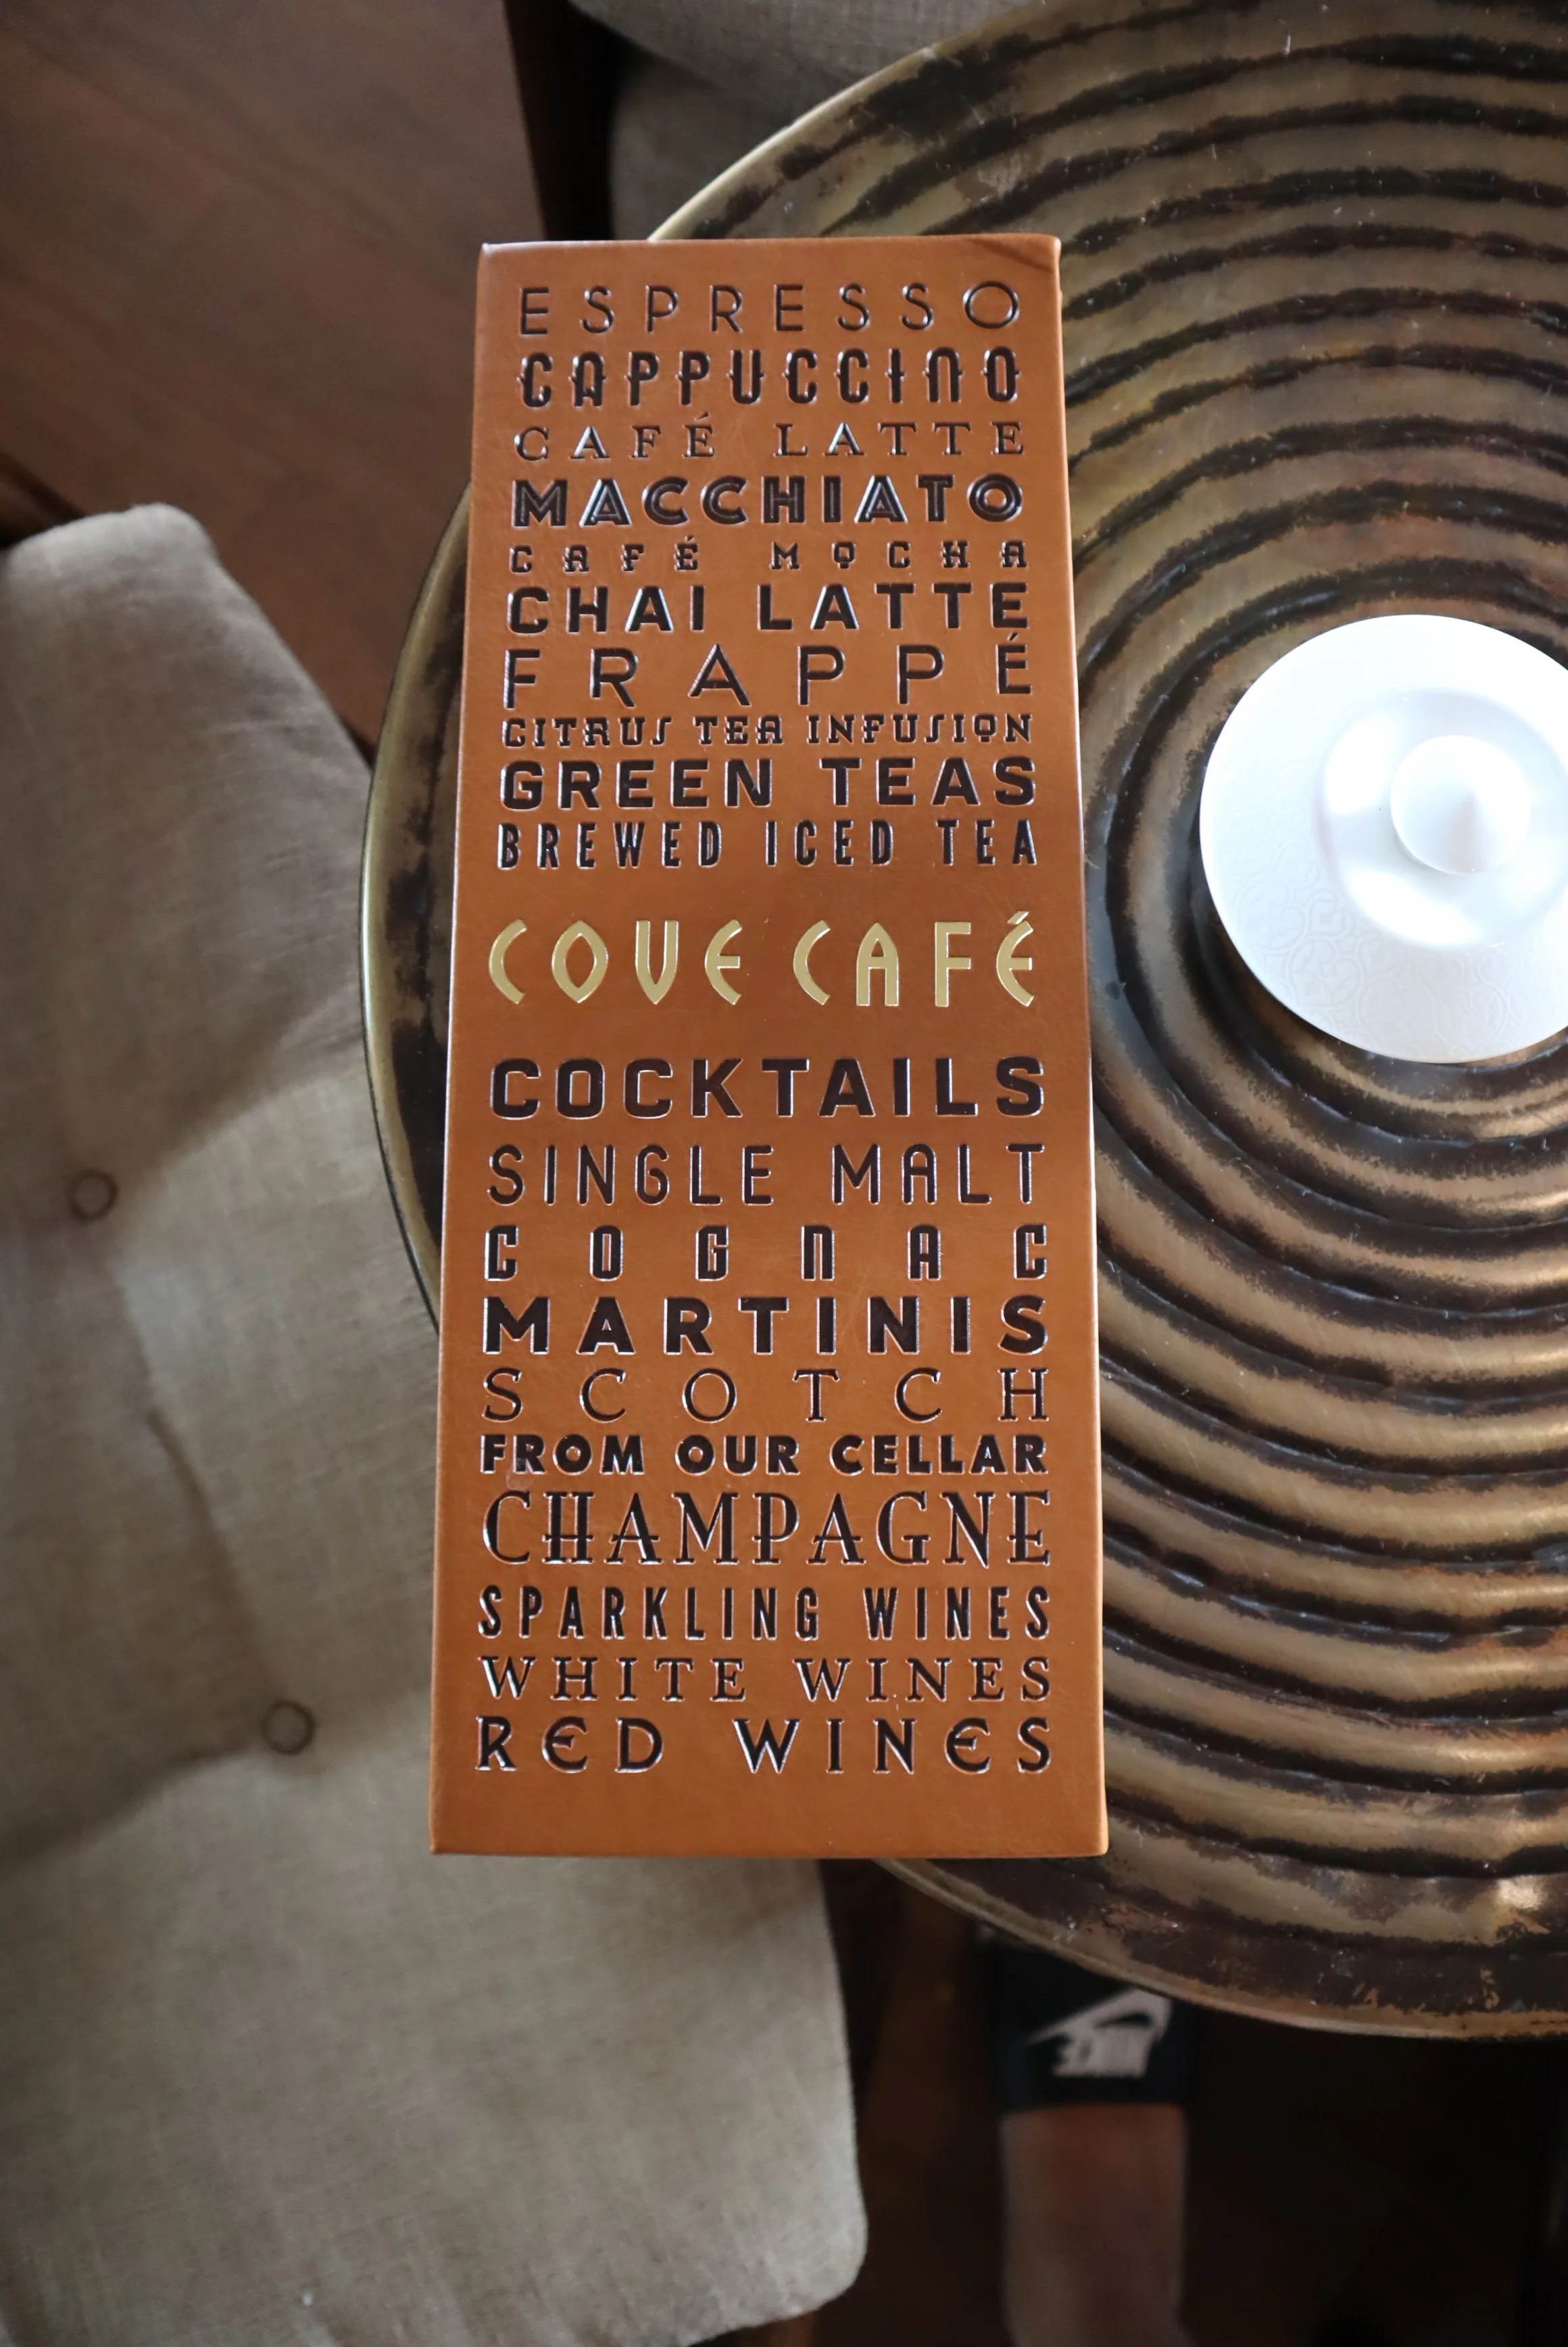 ESPRESSO
CAPPUCCINO
CAFÉ LATTE
MACCHIATO
CAFÉ MOCHA
CHAI LATTE
FRAPPÉ
CITRUS TEA INFUSION
GREEN TEAS
BREWED ICED TEA
COVE CAFÉ
COCKTAILS
SINGLE MALT
COGNAC
MARTINIS
SCOTCH
FROM OUR CELLAR
CHAMPAGNE
SPARKLING WINES
WHITE WINES
RED WINES